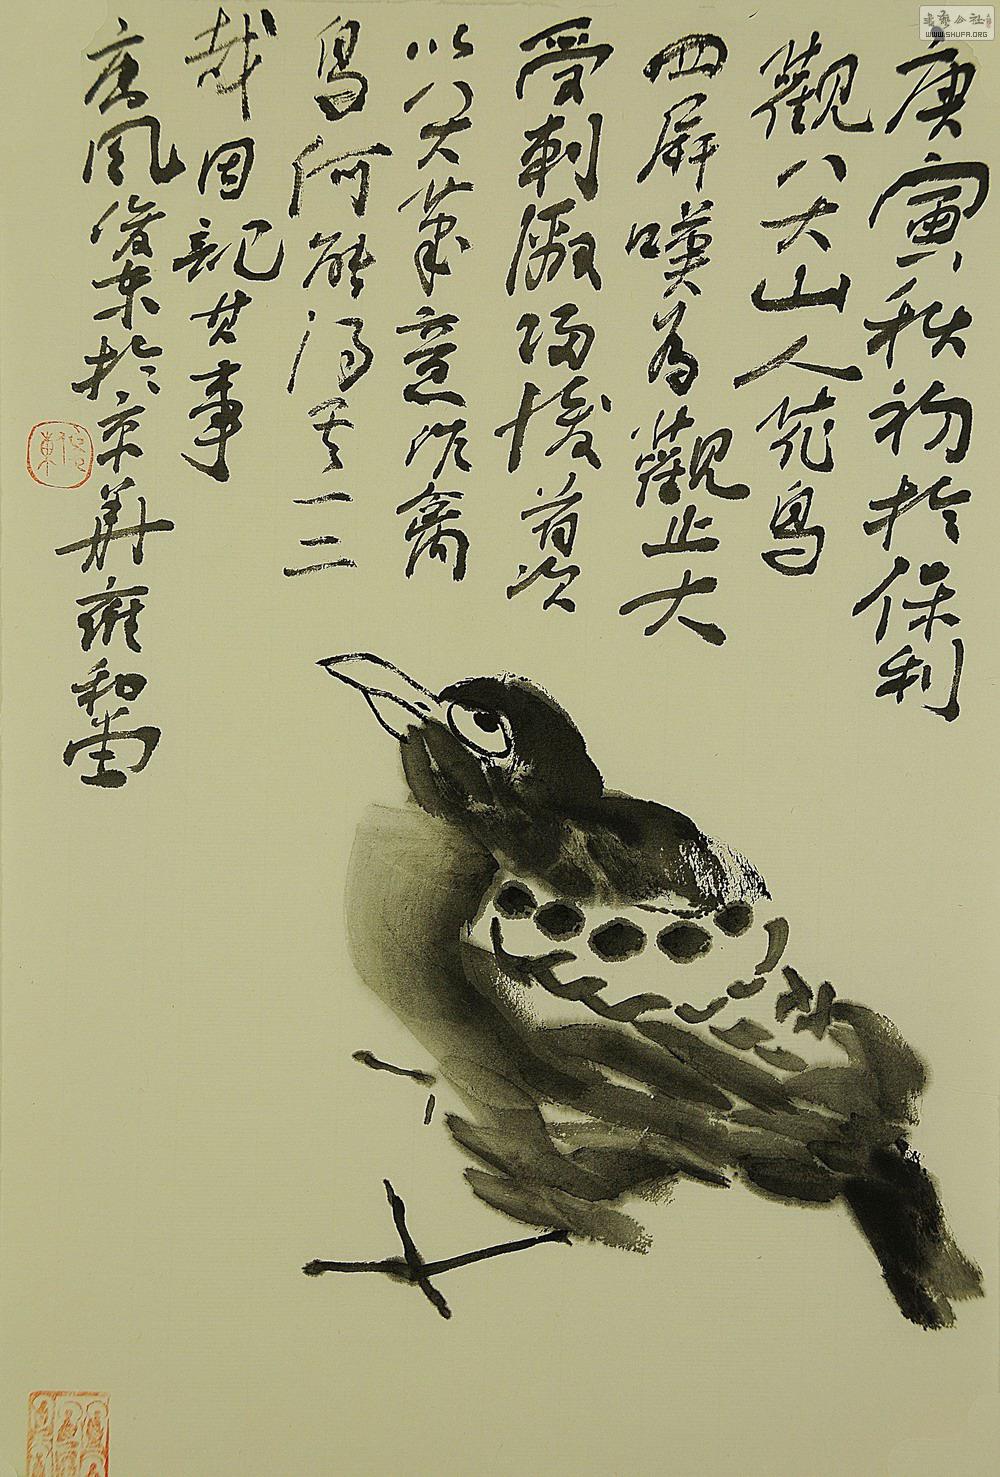 庚寅秋初於保利
觀八大山人花鳥
四屏嘆為觀止大
受刺激歸後首次
以八大筆意作禽
鳥何能得其一二
哉因記其事
唐風俊東於京華雍和堂
俊東
書藝公社
WWW.SHUFA.ORG